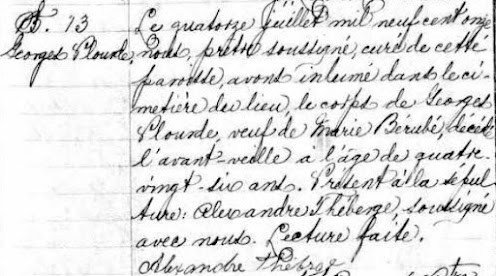 S. 13
Georges Plourde,
Le quatorze juillet mil neuf cent onze
nous, prêtre soussigné, curé de cette
paroisse, avons inhumé dans le ci-
metière du lieu, le corps de Georges
Plourde, veuf de Marie Bérubé, décédé
l'avant-veille a l'âge de quatre-
vingt-six ans. Present à la sépul-
ture: Alexandre Théberge, soussigné
avec nous. Lecture faite.
Alexandre Théberge